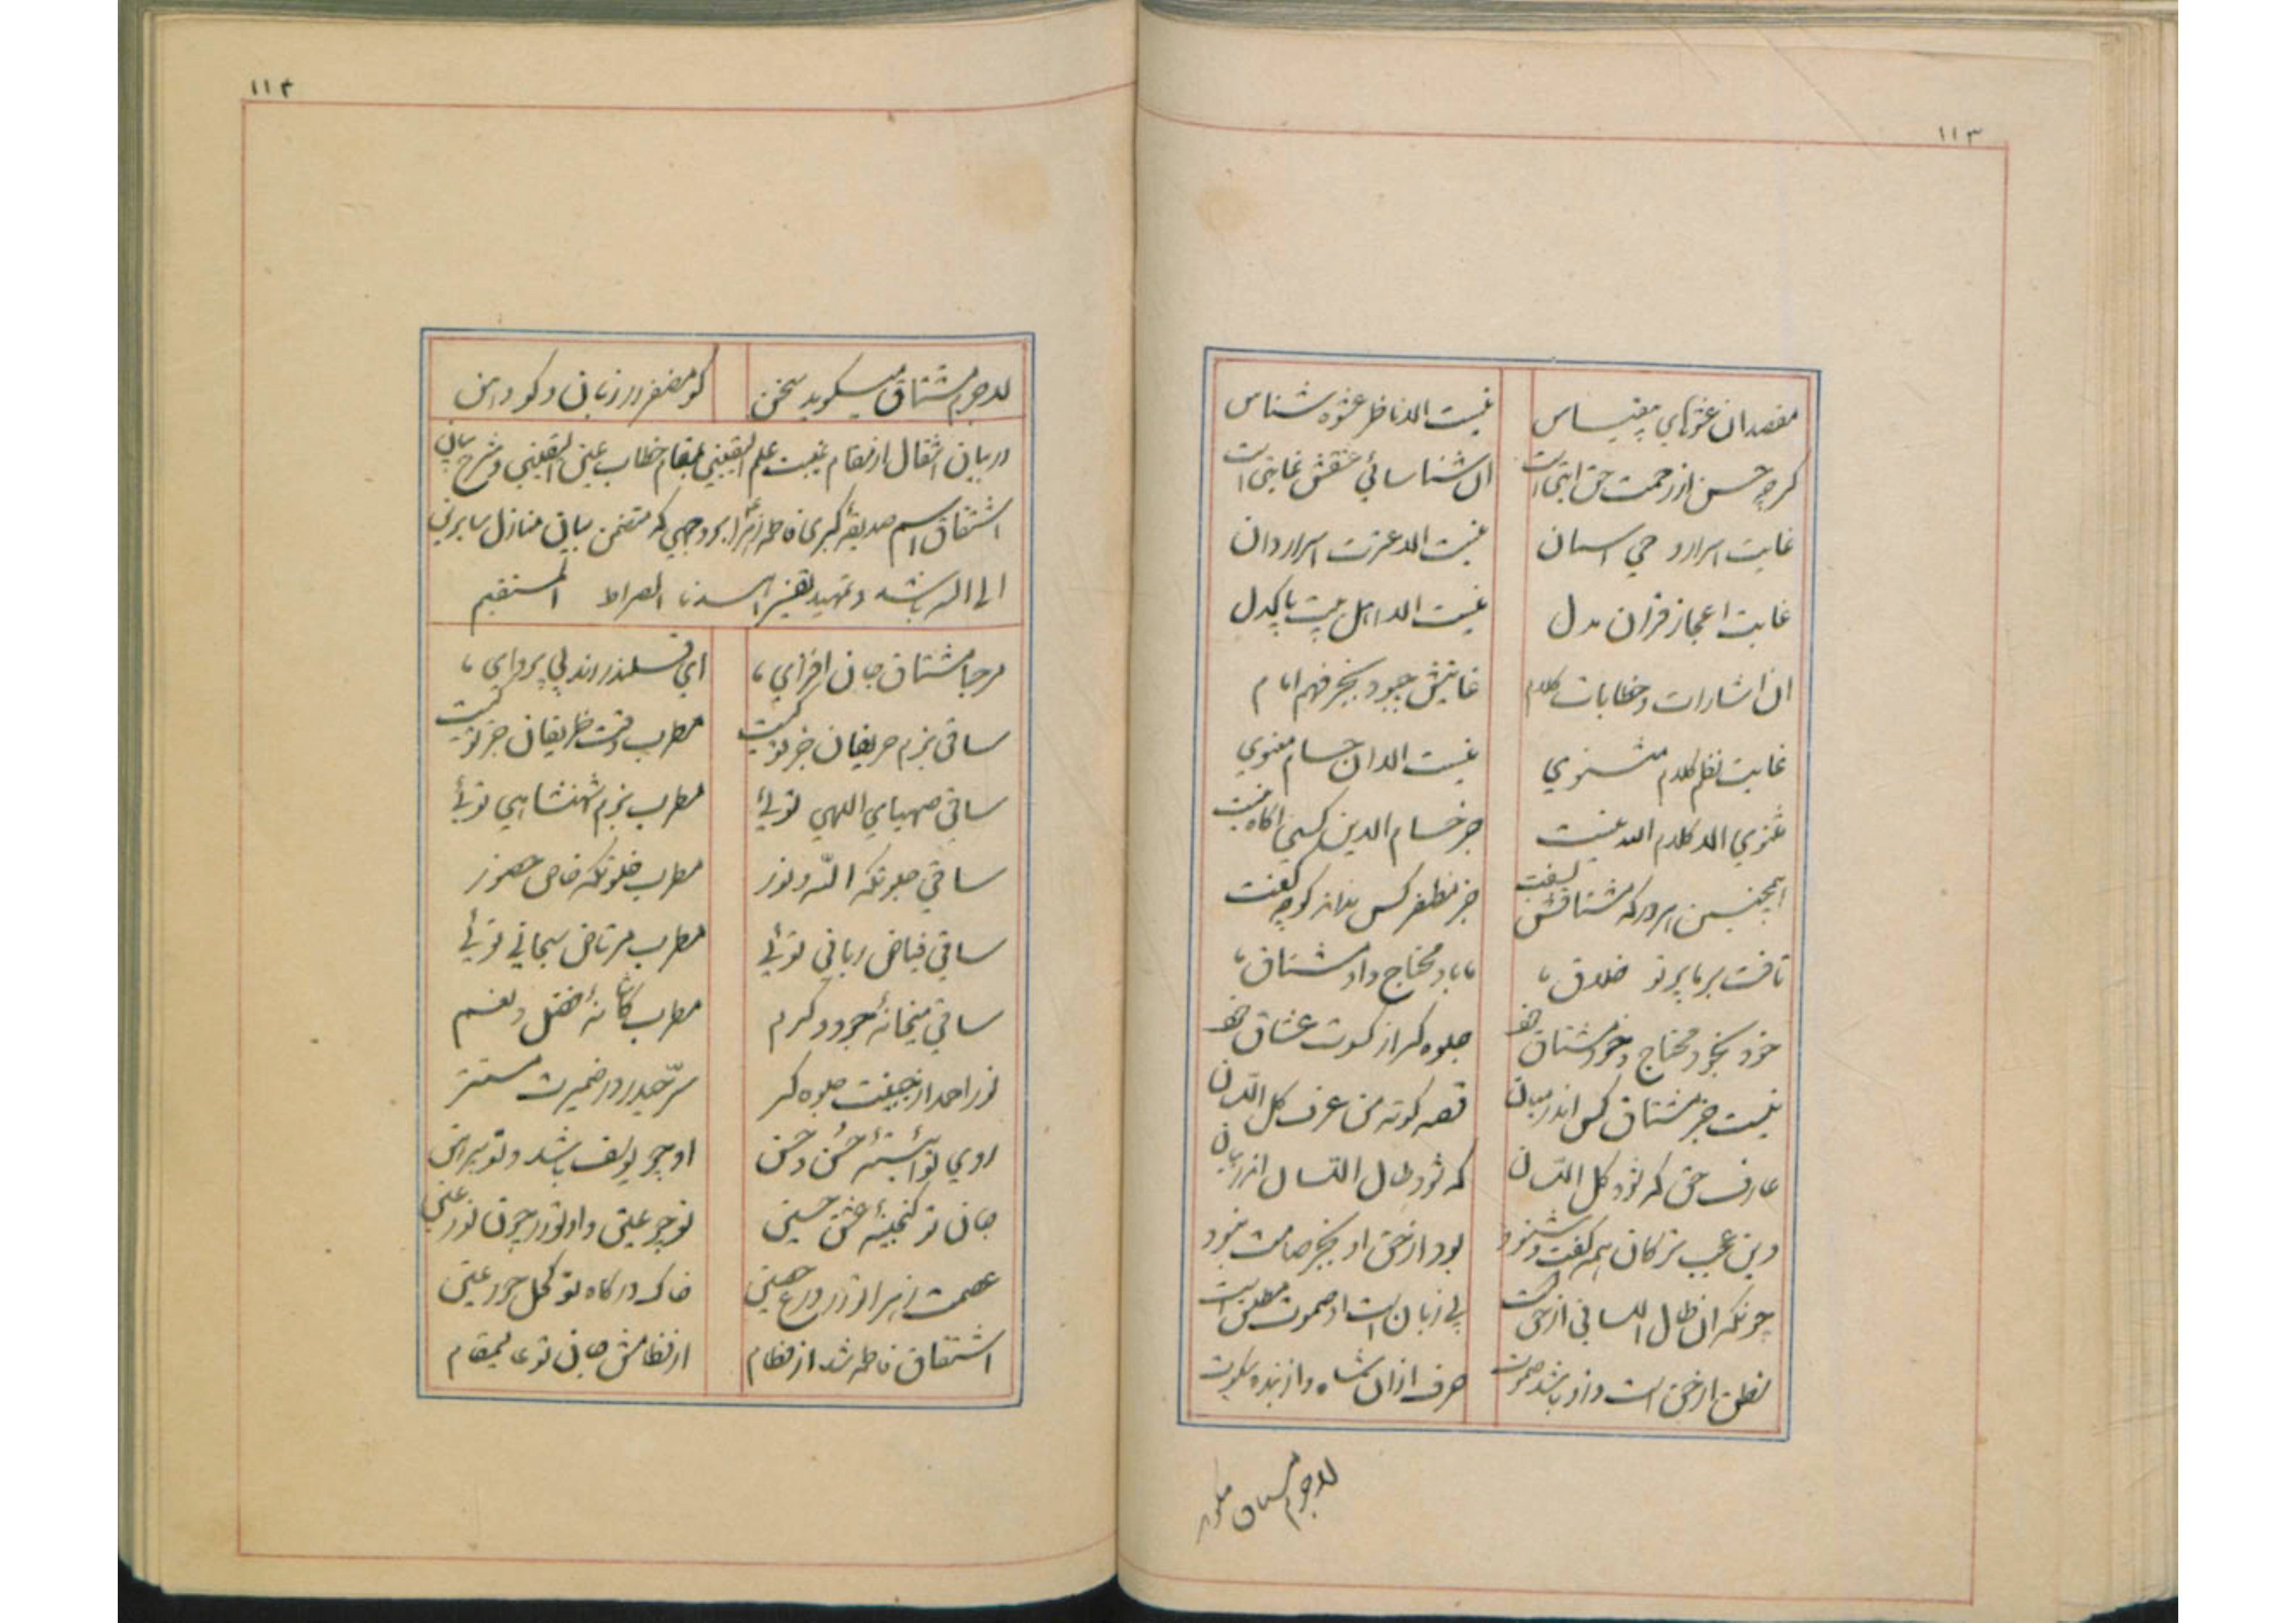 ۱۱۳
مقصد ان عشوهای بیقیاس نیست الا ناظر عشوه شناس
گرچه حسن از رحمت حق ابتداست ان شناسائی عشقش غایتی است
غایت اسرار وحی اسمان نیست الا عترت اسراردان
غایت اعجاز قران مدل نیست الا اهل بیت پاکدل
ان اشارات و خطابات کلام غایتش چبود بجز فهم امام
غایت نظم کلام مثنوی نیست الا ان حسام معنوی
مثنوی الا کلام الله نیست جز حسام الدین کسی اگاه نیست
همچنین امروز که مشتاقش بسفت جز مظفر کس نداند کو چه گفت
تافت بر ما پرتو خلاق ما، ما محتاج و او مشتاق ما
خود بخود محتاج و خود مشتاق خود جلوه گر از کسوت عشاق خود
نیست جز مشتاق کس اندر میان قصه کوته من عرف کل اللسان
عارف حق که شود کل اللسان که شود طال اللسان اندر بیان
وین عجب تر کان همه گفت و شنود بود از حق او بجز صامت نبود
چونکه ان طال اللسانی از حق است بی زبان است او صموت مطلق است
نطق از حق است و از و باشد صموت حرف ازان شاه و از بنده سکوت
لاجرم مشتاق میگوید
۱۱۴
لاجرم مشتاق میگوید سخن کو مظفر در زبان و کو دهن
در بیان انتقال از مقام غیبت علم الیقینی بمقام خطاب عین الیقینی و شرح بیان
اشتقاق اسم صدیقهٔ کبری فاطمه زهرا بر وجهی که متضمن بیان منازل سایرین
الی الله باشد و تمهید تفسیر اهدنا الصراط المستقیم
مرحبا مشتاق جان افزای ما ای قلندر رند بی پروای ما
ساقی بزم حریفان جز تو کیست مطرب وقت ظریفان جز تو کیست
ساقی صهبای اللهی توئی مطرب بزم شهنشاهی توئی
ساقی جلوتگه الله و نور مطرب خلوتگه خاص حضور
ساقی فیاض ربانی توئی مطرب مرتاض سبحانی توئی
ساقی میخانهٔ جود و کرم مطرب کاشانهٔ فضل و نعم
نور احمد از جبینت جلوه گر سرّ حیدر در ضمیرت مستتر
روی تو ائینهٔ حُسن حَسن او چو یوسف باشد و تو پیرهن
جان تو گنجینهٔ عشق حسین تو چو عینی و او تو در چون نور عین
عصمت زهرا ترا درع حصین خاک درگاه تو کحل حور عین
اشتقاق فاطمه شد از فطام از فطامش جان تو عالیمقام